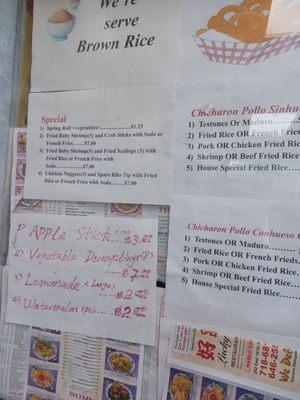 We're
serve
Brown Rice
Special
1) Spring Roll <vegetables>..............$1.25
2) Fried Baby Shrimp(5) and Crab Sticks with Soda or
French Fries..............$7.00
3) Fried Baby Shrimp(5) and Fried Scallops (5) with
Fried Rice or French Fries with
Soda..............$7.00
4) Chicken Nuggets(5) and Spare Ribs Tip with Fried
Rice or French Fries with Soda.........$7.00
1) Apple Stick
2) Vegetable Dumpling(8)
$7.00
3) Lemonade <large>
4) Watermelon
Chicharon Pollo Sinhu
1) Testones Or Maduro
2) Fried Rice OR French Fries
3) Pork OR Chicken Fried Rice
4) Shrimp OR Beef Fried Rice
5) House Special Fried Rice
Chicharon Pollo Conhueso
1) Testones OR Maduro
2) Fried Rice OR French Frieds
3) Pork OR Chicken Fried Rice
4) Shrimp OR Beef Fried Rice
5) House Special Fried Rice
好
Lucky
RESTAURANT
718-68
646-25
We Del
SPECIAL